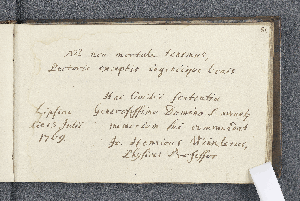 Nil non mortale tenemus,
Pectoris exceptis ingeniique bonis
Hac Ovidii sententia
Lipsiae Generosissimo Domino
Julii memoriam sui commendat
1769. Jo. Henricus Winklerus,
Physices Professor